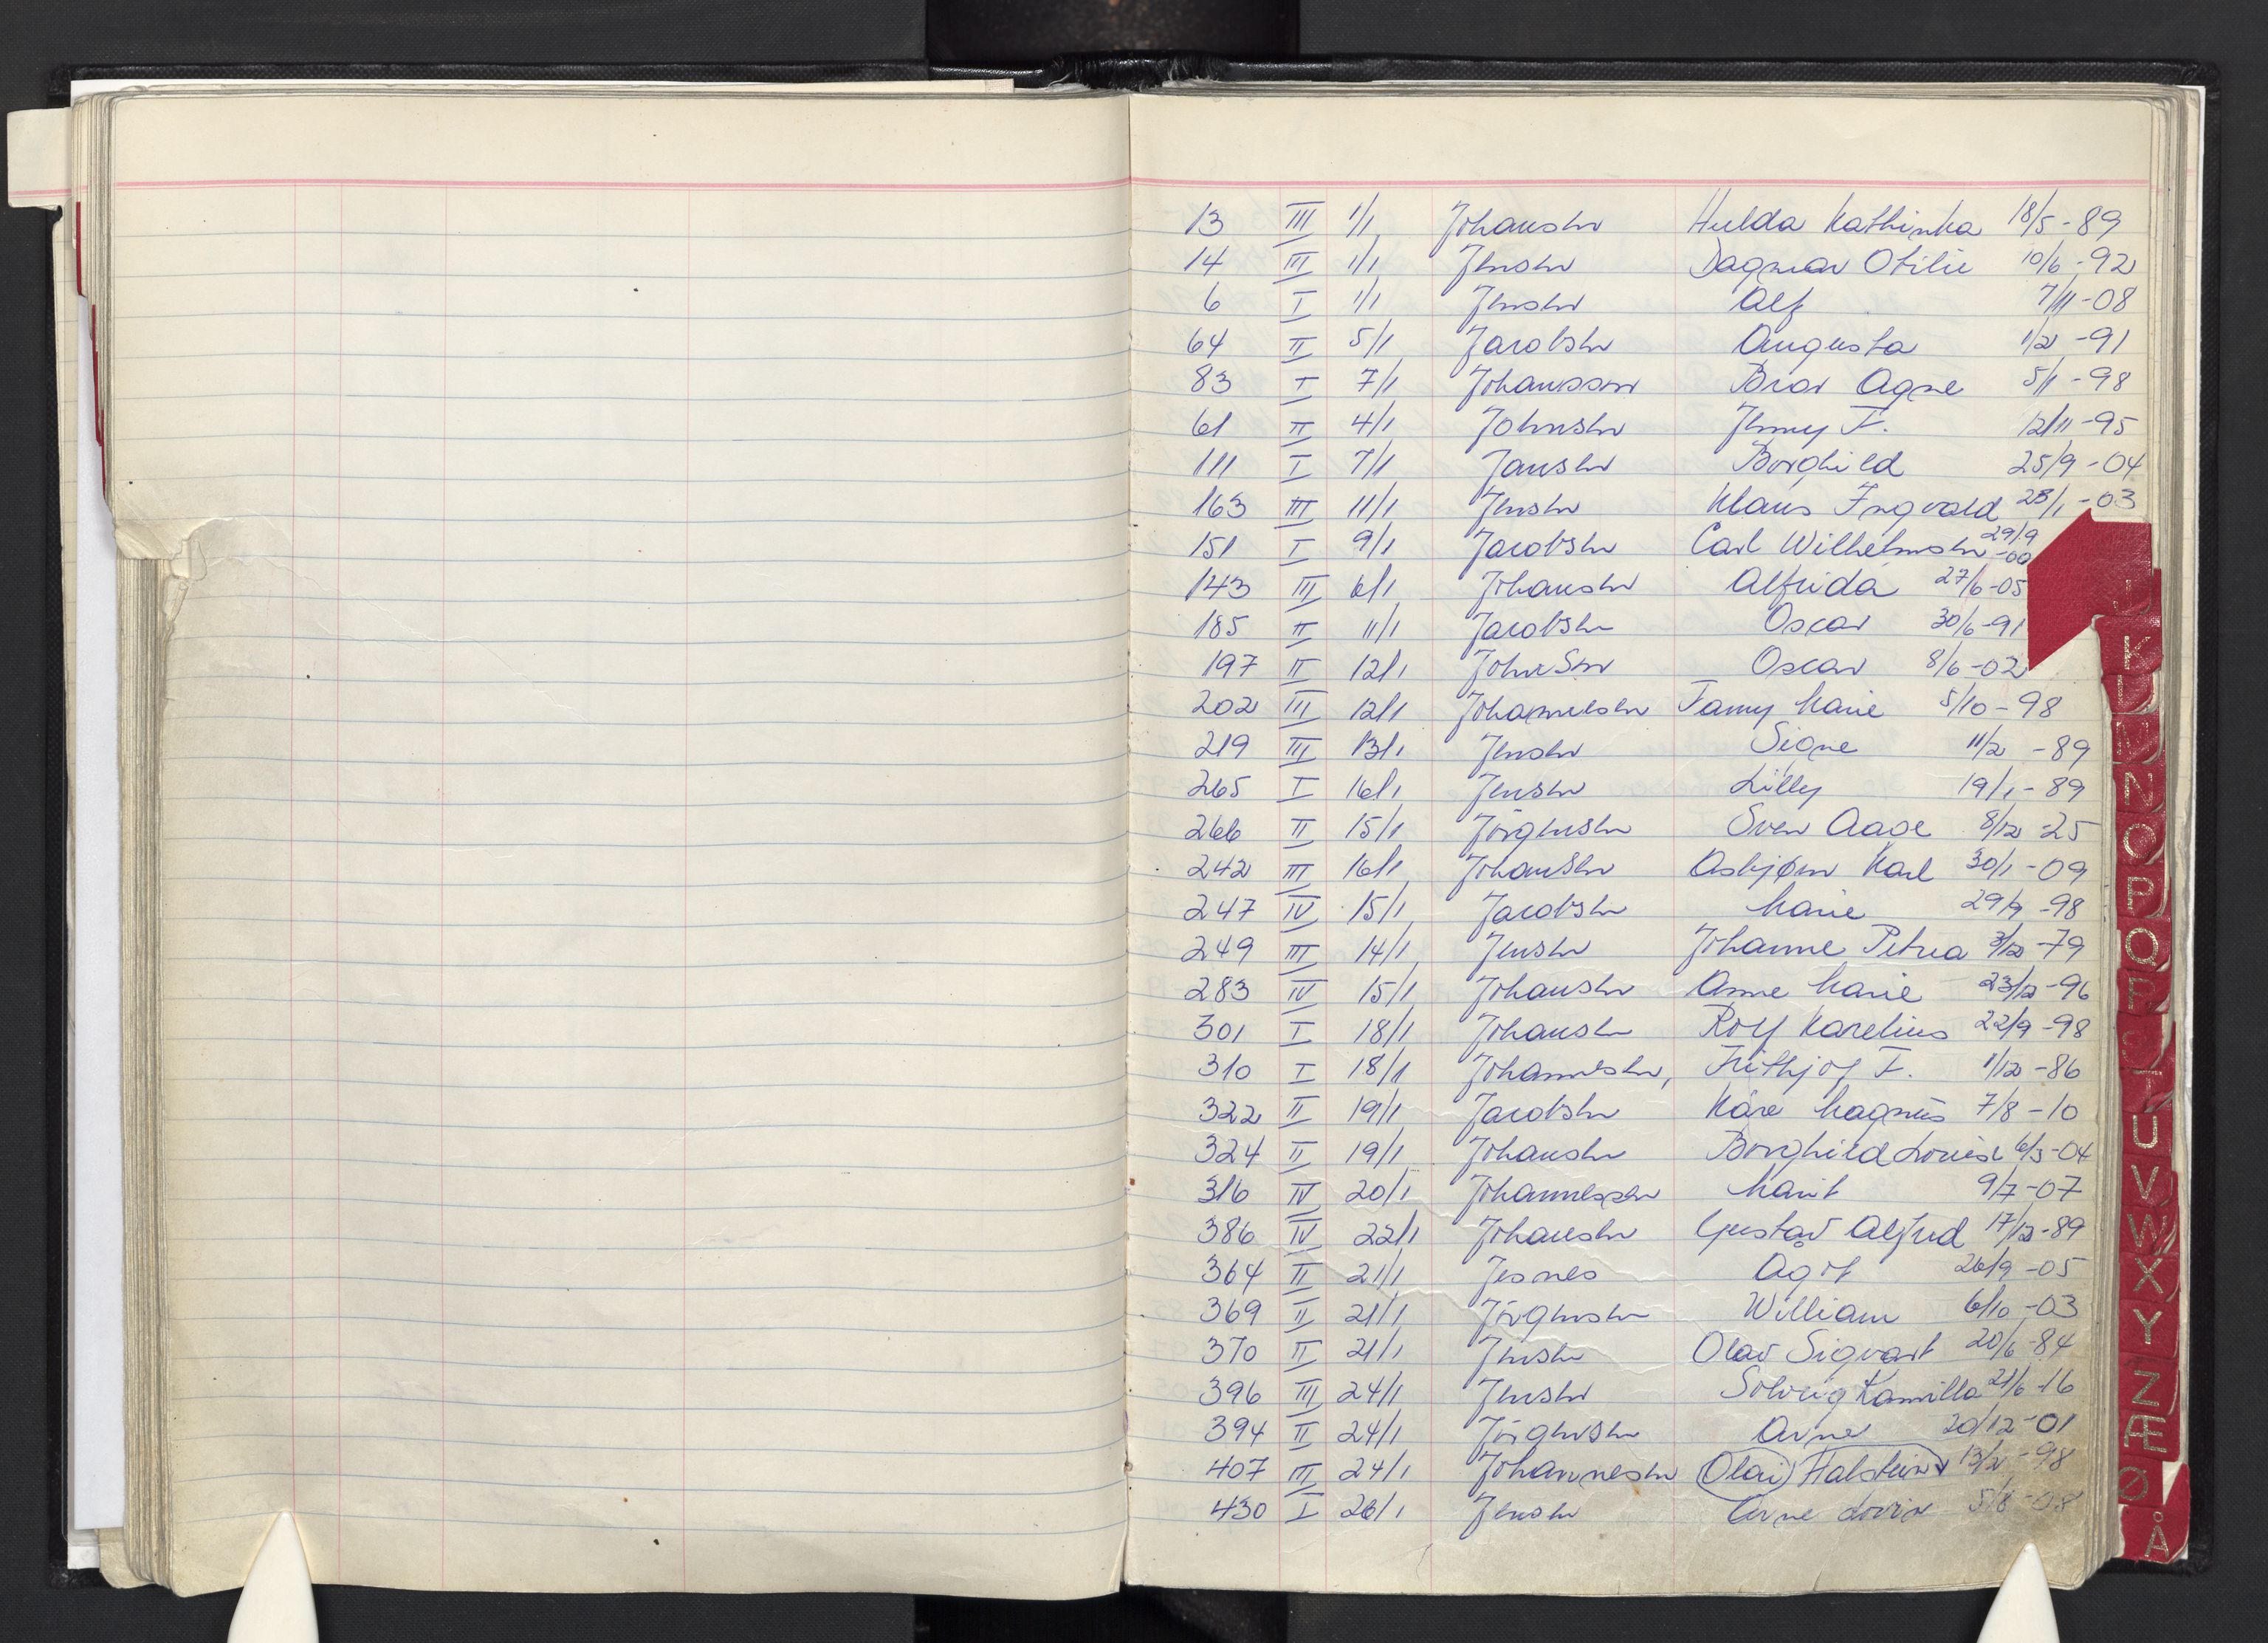 13 III 1/1 Johansen Hulda Kathinka 18/5 - 89
14 III 1/1 Jensen Dagmar Otilie 10/6 - 92
6 I 1/1 Jensen Alf 7/11 - 08
64 II 5/1 Jacobsen Augusta 1/2 - 91
83 I 7/1 Johansson Bror Agne 5/1 - 98
61 II 4/1 Johnsen Jenny F. 12/11 - 95
111 I 7/1 Jansen Borghild 25/9 - 04
163 III 11/1 Jensen Klaus Ingvald 28/1 - 03
151 I 9/1 Jacobsen Carl Wilhelmsen 29/9 - 00
143 III 6/1 Johansen Alfrida 27/6 - 05
185 II 11/1 Jacobsen Oscar 30/6 - 91
197 II 12/1 Johnsen Oscar 8/6 - 02
202 III 12/1 Johannesen Fanny Marie 5/10 - 98
219 III 13/1 Jensen Signe 11/2 - 89
265 I 16/1 Jensen Lilly 19/1 - 89
266 II 15/1 Jörgensen Sven Aage 8/12 - 25
242 III 16/1 Johansen Asbjørn Karl 30/1 - 09
247 IV 15/1 Jacobsen Marie 29/9 - 98
249 III 14/1 Jensen Johanne Petrea 3/12 - 79
283 IV 15/1 Johansen Anne Marie 23/12 - 96
301 I 18/1 Johansen Rolf Karelius 22/9 - 98
310 I 18/1 Johannesen, Frithjof F. 1/12 - 86
322 II 19/1 Jacobsen Kåre Magnus 7/8 - 10
324 II 19/1 Johansen Borghild Louise 6/3 - 04
316 IV 20/1 Johannessen Marit 9/7 - 07
386 IV 22/1 Johansen Gustav Alfred 17/12 - 89
364 II 21/1 Jesnes Ågot 26/9 - 05
369 II 21/1 Jörgensen William 6/10 - 03
370 II 21/1 Jensen Olav Sigvart 20/6 - 84
396 III 24/1 Jensen Solveig Kamilla 21/6 - 16
394 II 24/1 Jörgensen Arne 20/12 - 01
407 III 24/1 Johannesen (Olai) Halstein 13/2 - 98
430 I 26/1 Jensen Arne 5/8 - 08
J
K
L
M
N
O
P
Q
R
S
T
U
V
W
X
Y
Z
Æ
Ø
Å